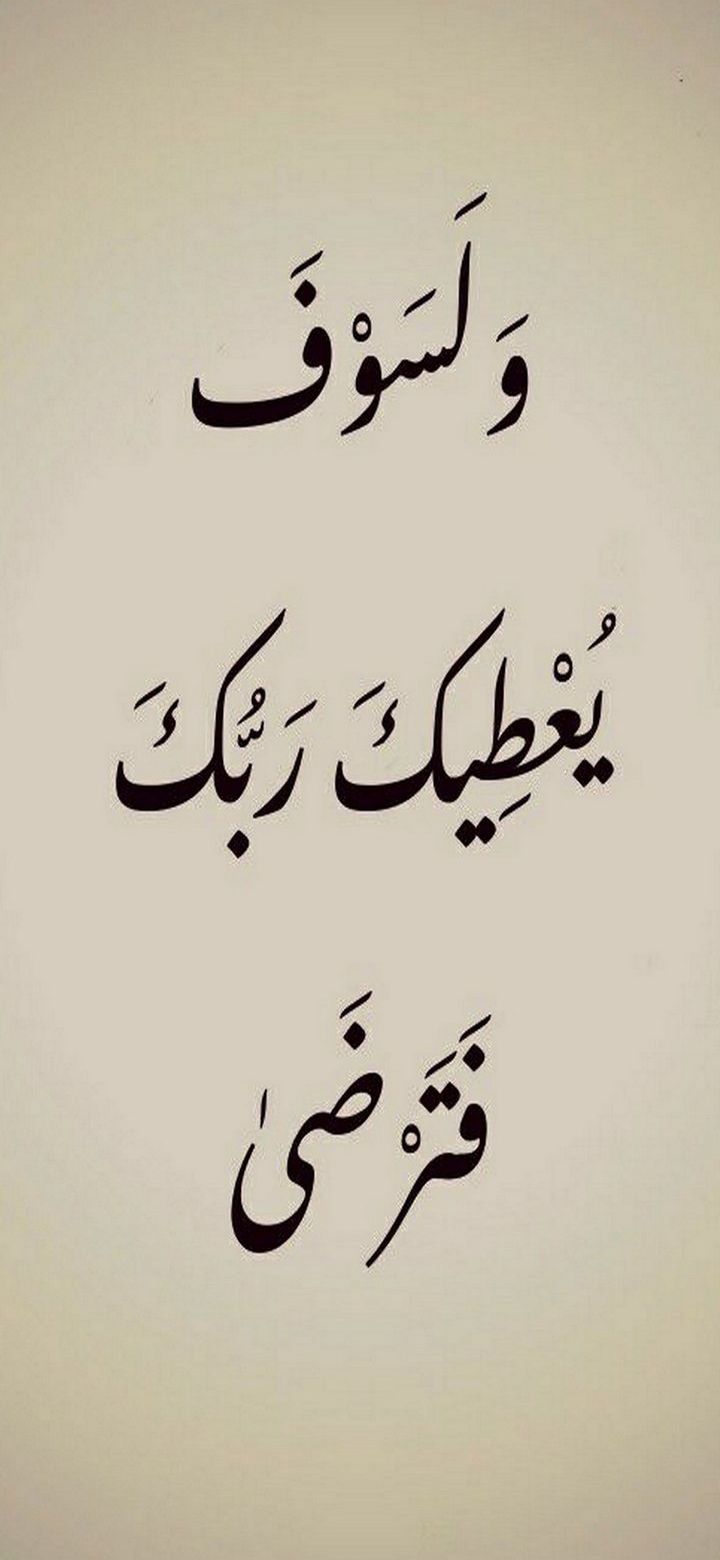 وَلَسَوْفَ
يُعْطِيكَ رَبُّكَ
فَتَرْضَىٰ